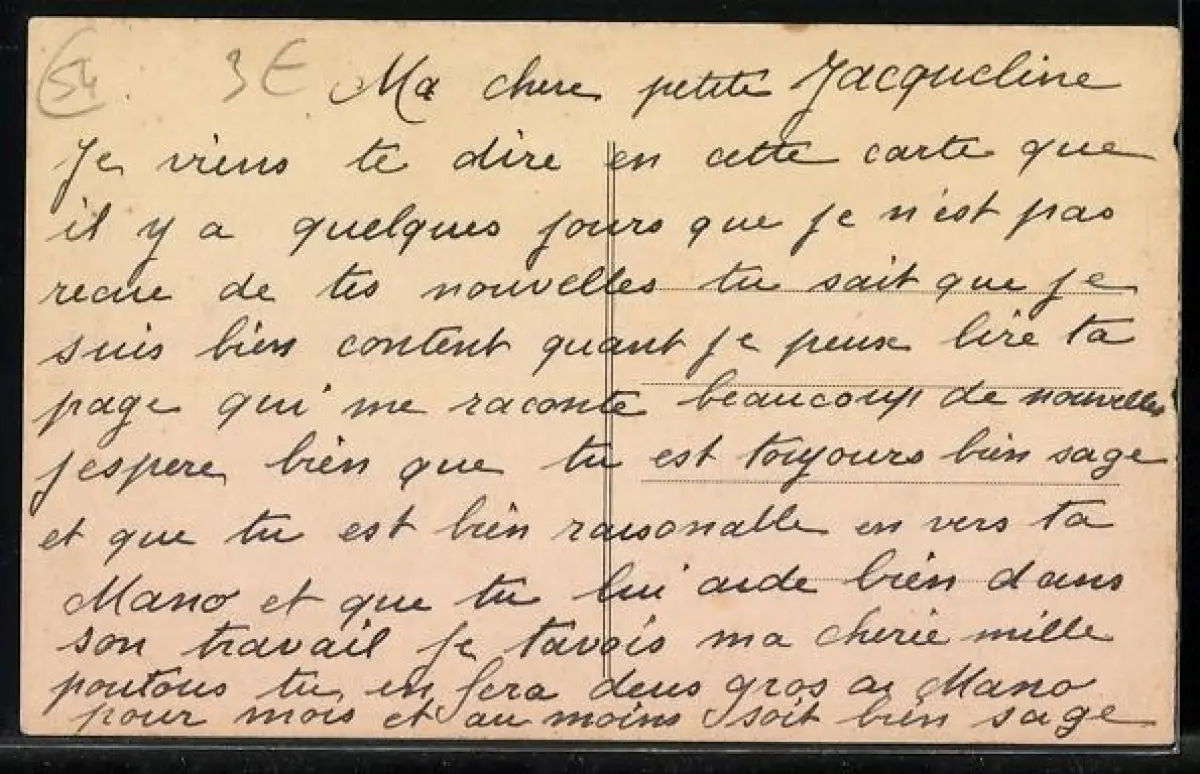 54 3€
Ma chere petite Jacqueline
Je viens te dire en cette carte que
il y a quelques jours que je n'est pas
recue de tes nouvelles tu sait que je
suis bien content quant je peux lire ta
page qui me raconte beaucoup de nouvelles
jespere bien que tu est toujours bien sage
et que tu est bien raisonable en vers ta
Mano et que tu lui aide bien dans
son travail je tavois ma cherie mille
poutous tu en fera deus gros a Mano
pour mois et au moins soit bien sage